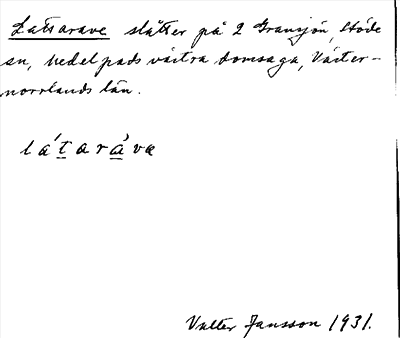 Lattarave slåtter på 2 Gransjön, Stöde
sn, Medelpads västra domsaga, Väster-
norrlands län.
látaràva
Valter Jansson 1931.